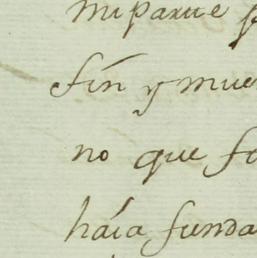 mi parte
fin y mue
no que fo
haia funda